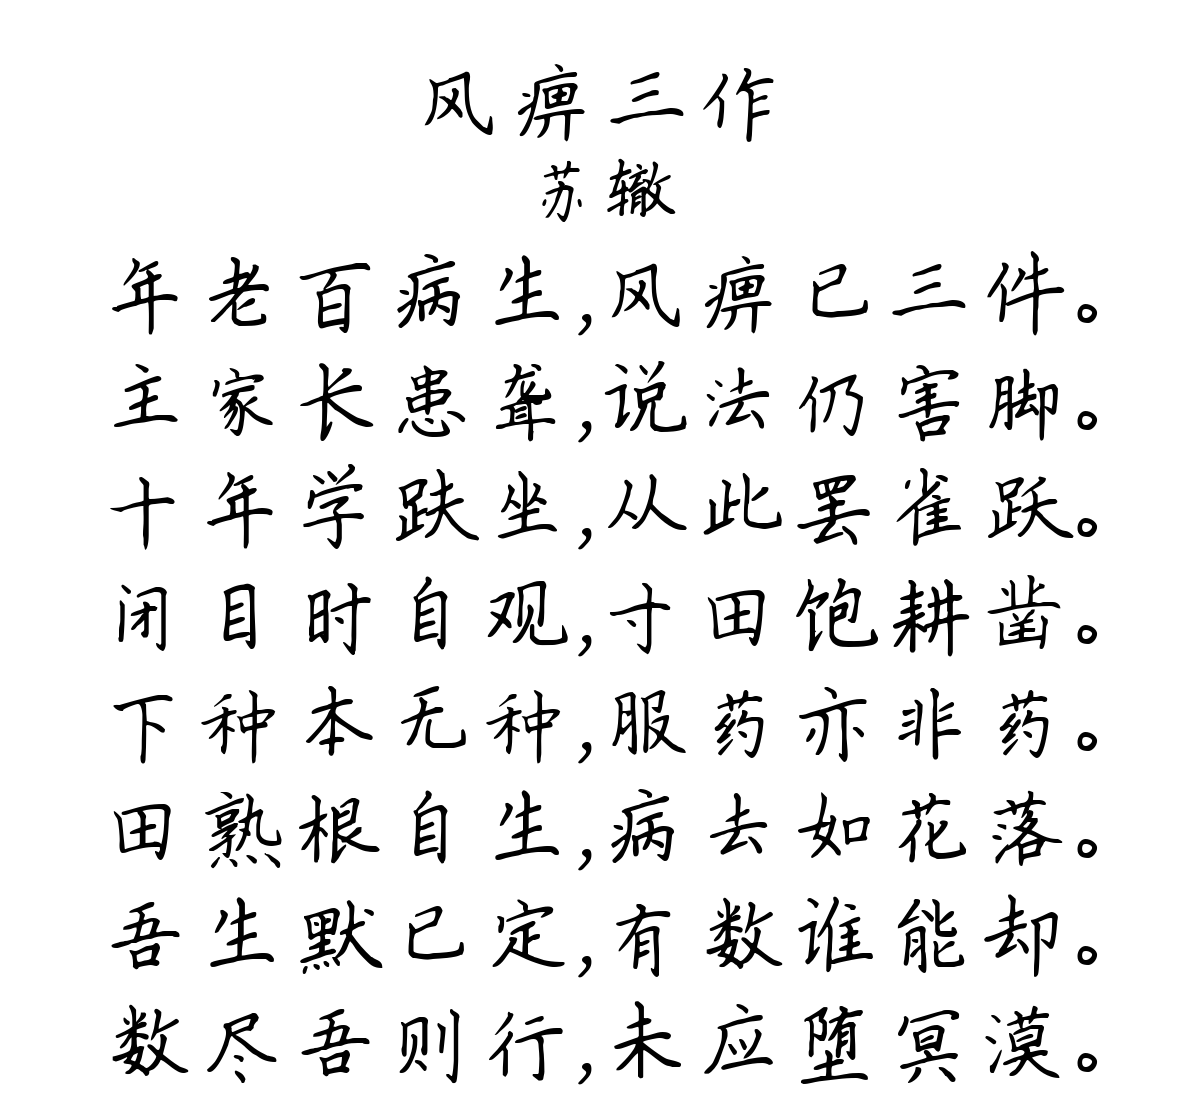 风痹三作
苏辙
年老百病生,风痹已三件。
主家长患聋,说法仍害脚。
十年学趺坐,从此罢雀跃。
闭目时自观,寸田饱耕凿。
下种本无种,服药亦非药。
田熟根自生,病去如花落。
吾生默已定,有数谁能却。
数尽吾则行,未应堕冥漠。